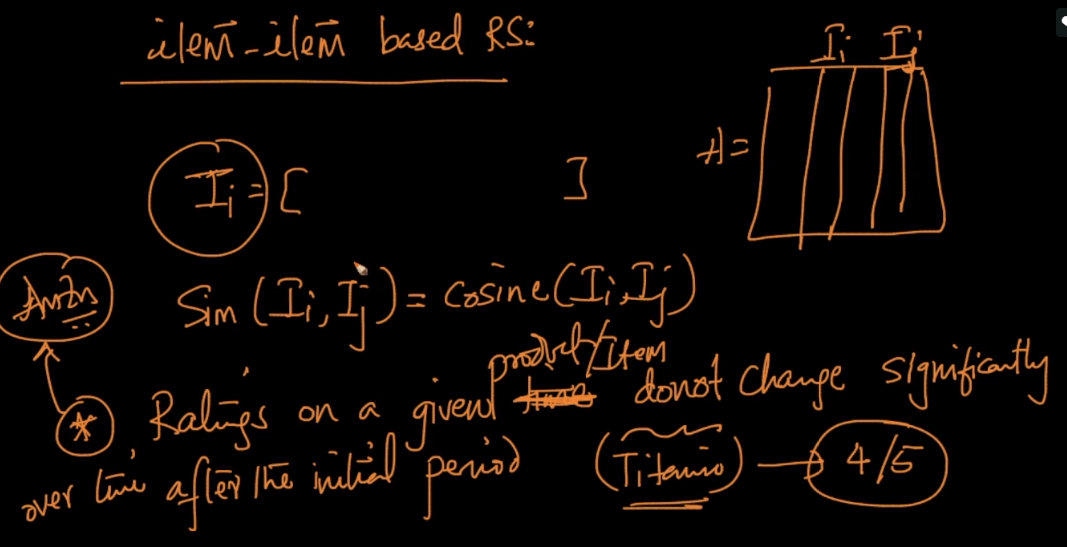 item-item based RS:
Ii Ij
A=
Ii = [ ]
Amzn
Sim (Ii, Ij) = cosine(Ii, Ij)
product/item
* Ratings on a given donot change significantly
over time after the initial period (Titanic) → 4/5